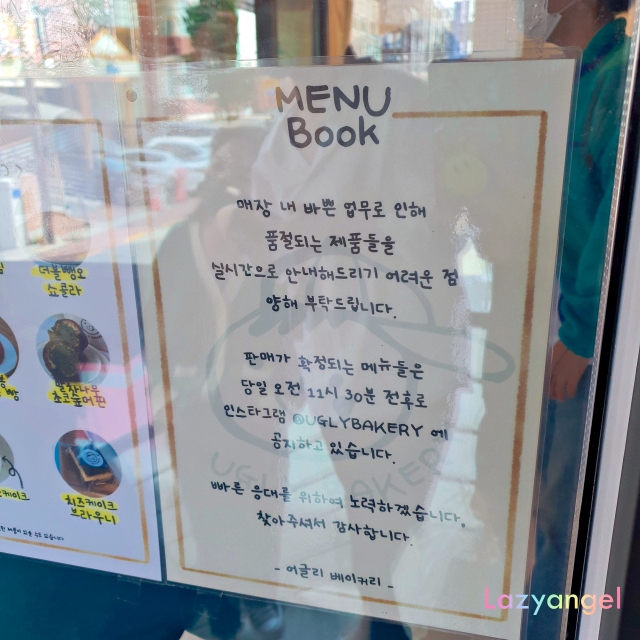 MENU
Book
매장 내 바쁜 업무로 인해
품절되는 제품들을
실시간으로 안내해드리기 어려운 점
양해 부탁드립니다.
판매가 확정되는 메뉴들은
당일 오전 11시 30분 전후로
인스타그램 @UGLYBAKERY 에
공지하고 있습니다.
빠른 응대를 위하여 노력하겠습니다.
찾아주셔서 감사합니다.
- 어글리 베이커리 -
더블 뺑오
쇼콜라
치즈케이크
브라우니
Lazyangel